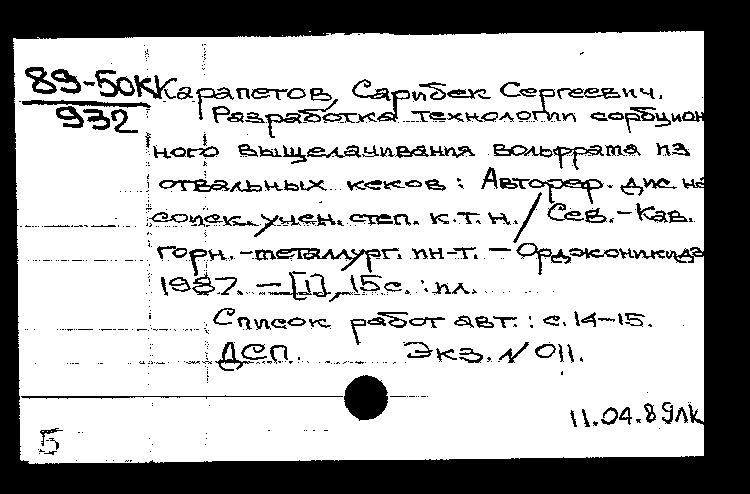 89-50КК
932
Карапетов, Сарибек Сергеевич.
Разработка технологии сорбцион
ного выщелачивания вольфрама из
отвальных кеков : Автореф. дис. на
соиск. учен. степ. к.т.н. / Сев.-Кав.
горн.-металлург. ин-т. – Орджоникидзе
1987. – [1], 15 с. : ил.
Список работ авт. : с. 14-15.
ДСП. Экз. N 011.
11.04.89лк
5